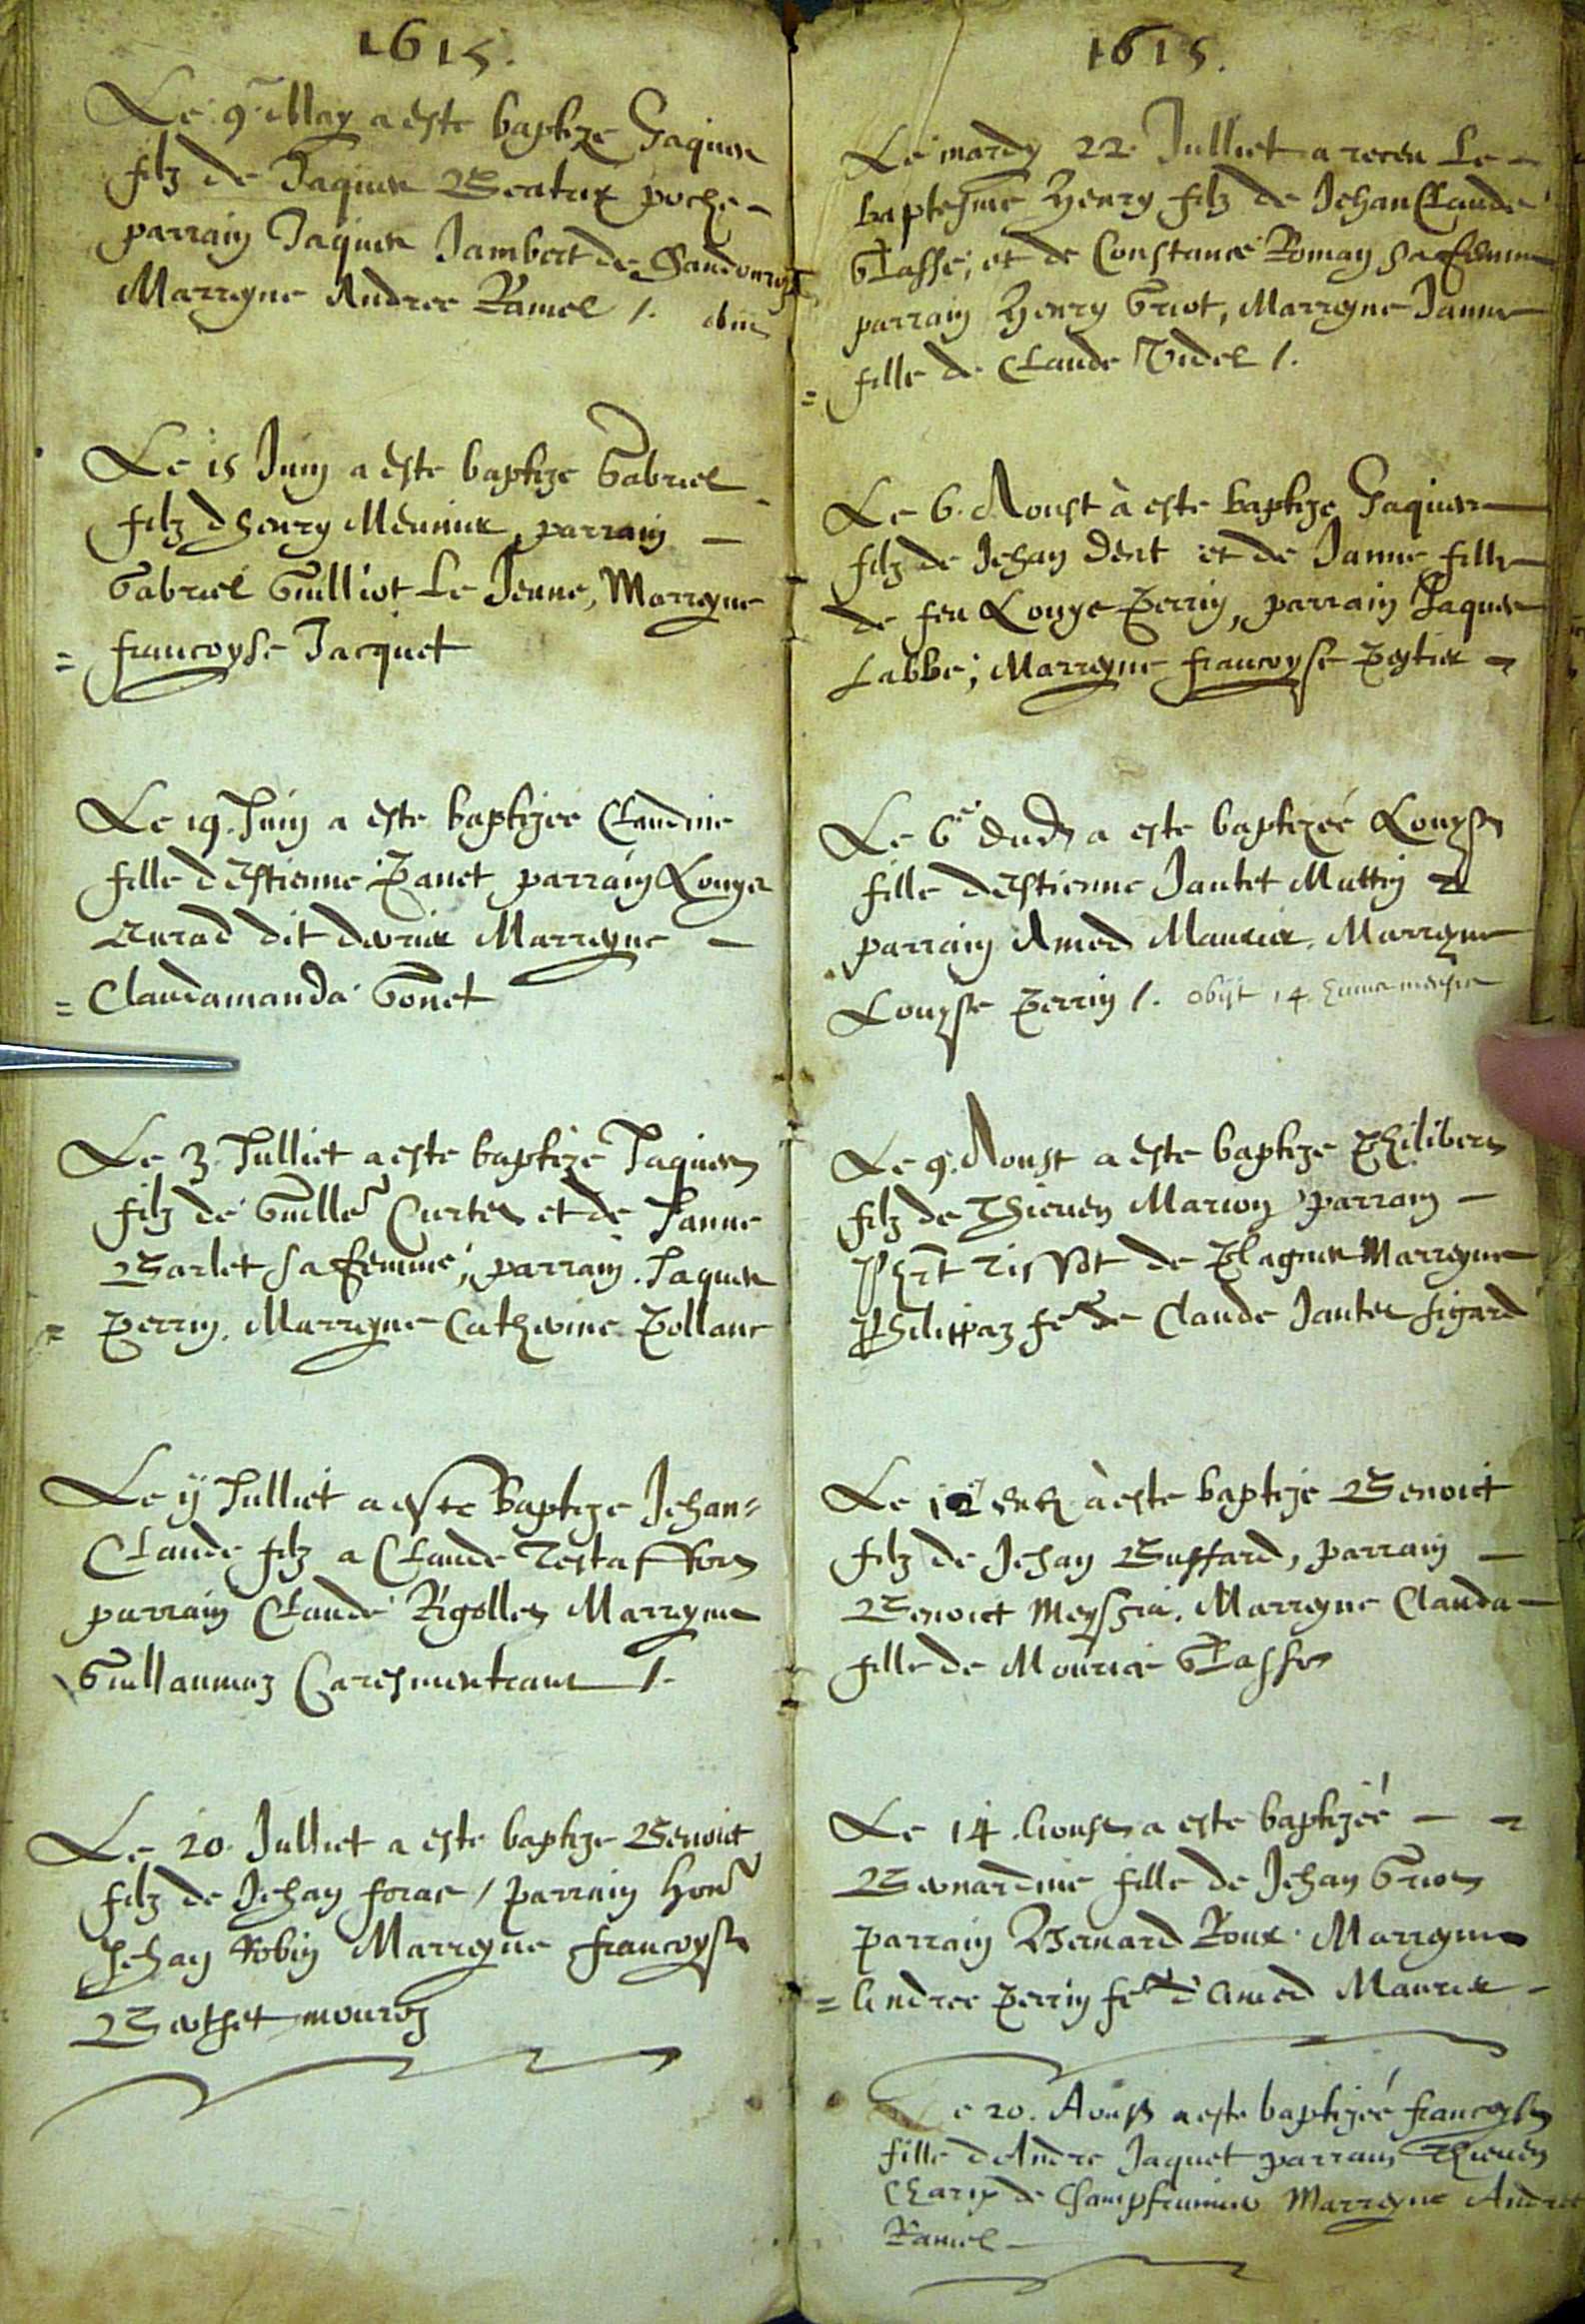 1615.
Le 9 May a este baptize Jaques
filz de Jaques Beatrix poche
parrain Jaques Jambert de
Marreyne Andree Ramel /.
Le 15 Juin a este baptize Gabriel
filz dhenry Meunier, parrain
Gabriel Guilliot Le Jeune, Marreyne
= francoyse Jacquet
Le 19. Juin a este baptizée Claudine
fille d'Estienne Panet parrain Louys
Curad dit Marreyne
= Claudamanda Gonet
Le 3. Julliet a este baptize Jaques
filz de Guille Curtet et de Janne
Barlet sa femme, parrain. Jaques
= Perrin. Marreyne Catherine Pollanc
Le ij Julliet a este baptize Jehan=
Claude filz a Claude Testaffort
parrain Claude Rigollet Marreyne
Guillaumaz Caresmentrant /.
Le 20. Julliet a este baptize Benoict
filz de Jehan forac / parrain hon
Jehan Robin Marreyne francoyse
Berthet mouroz
1615.
Le mardy 22. Julliet a receu Le
baptesme Henry filz de Jehan Claude
Glasse, et de Constance Roman sa femme
parrain Henry Griot, Marreyne Janne
= fille de Claude Videl /.
Le 6. Aoust à este baptize Jaques
filz de Jehan Dert et de Janne fille
de feu Louys Perrin, parrain Jaques
Labbe; Marreyne francoyse
Le 6e dudt a este baptizeé Louyse
fille d'Estienne Jantet Muttin
parrain Amed Maurier. Marreyne
Louyse Perrin /. obijt 14
Le 9. Aoust a este baptize Philibert
filz de Thieven Marion parrain
Phrt Tissot de Plagnes Marreyne
Philippaz fe de Claude Jantet figard
Le 12 a este baptize Benoict
filz de Jehan Buffard, parrain
Benoict Meyssia. Marreyne Clauda
fille de Mourice Glasse
Le 14. Aoust a este baptizeé
Bernardine fille de Jehan Griot
parrain Bernard Roux. Marreyne
= Andree Perrin fe d'Amed Maurier
Le 20. Aoust a este baptizeé francoyse
fille dAndre Jaquet parrain Thieven
Charix de Champfromier Marreyne Andree
Ramel